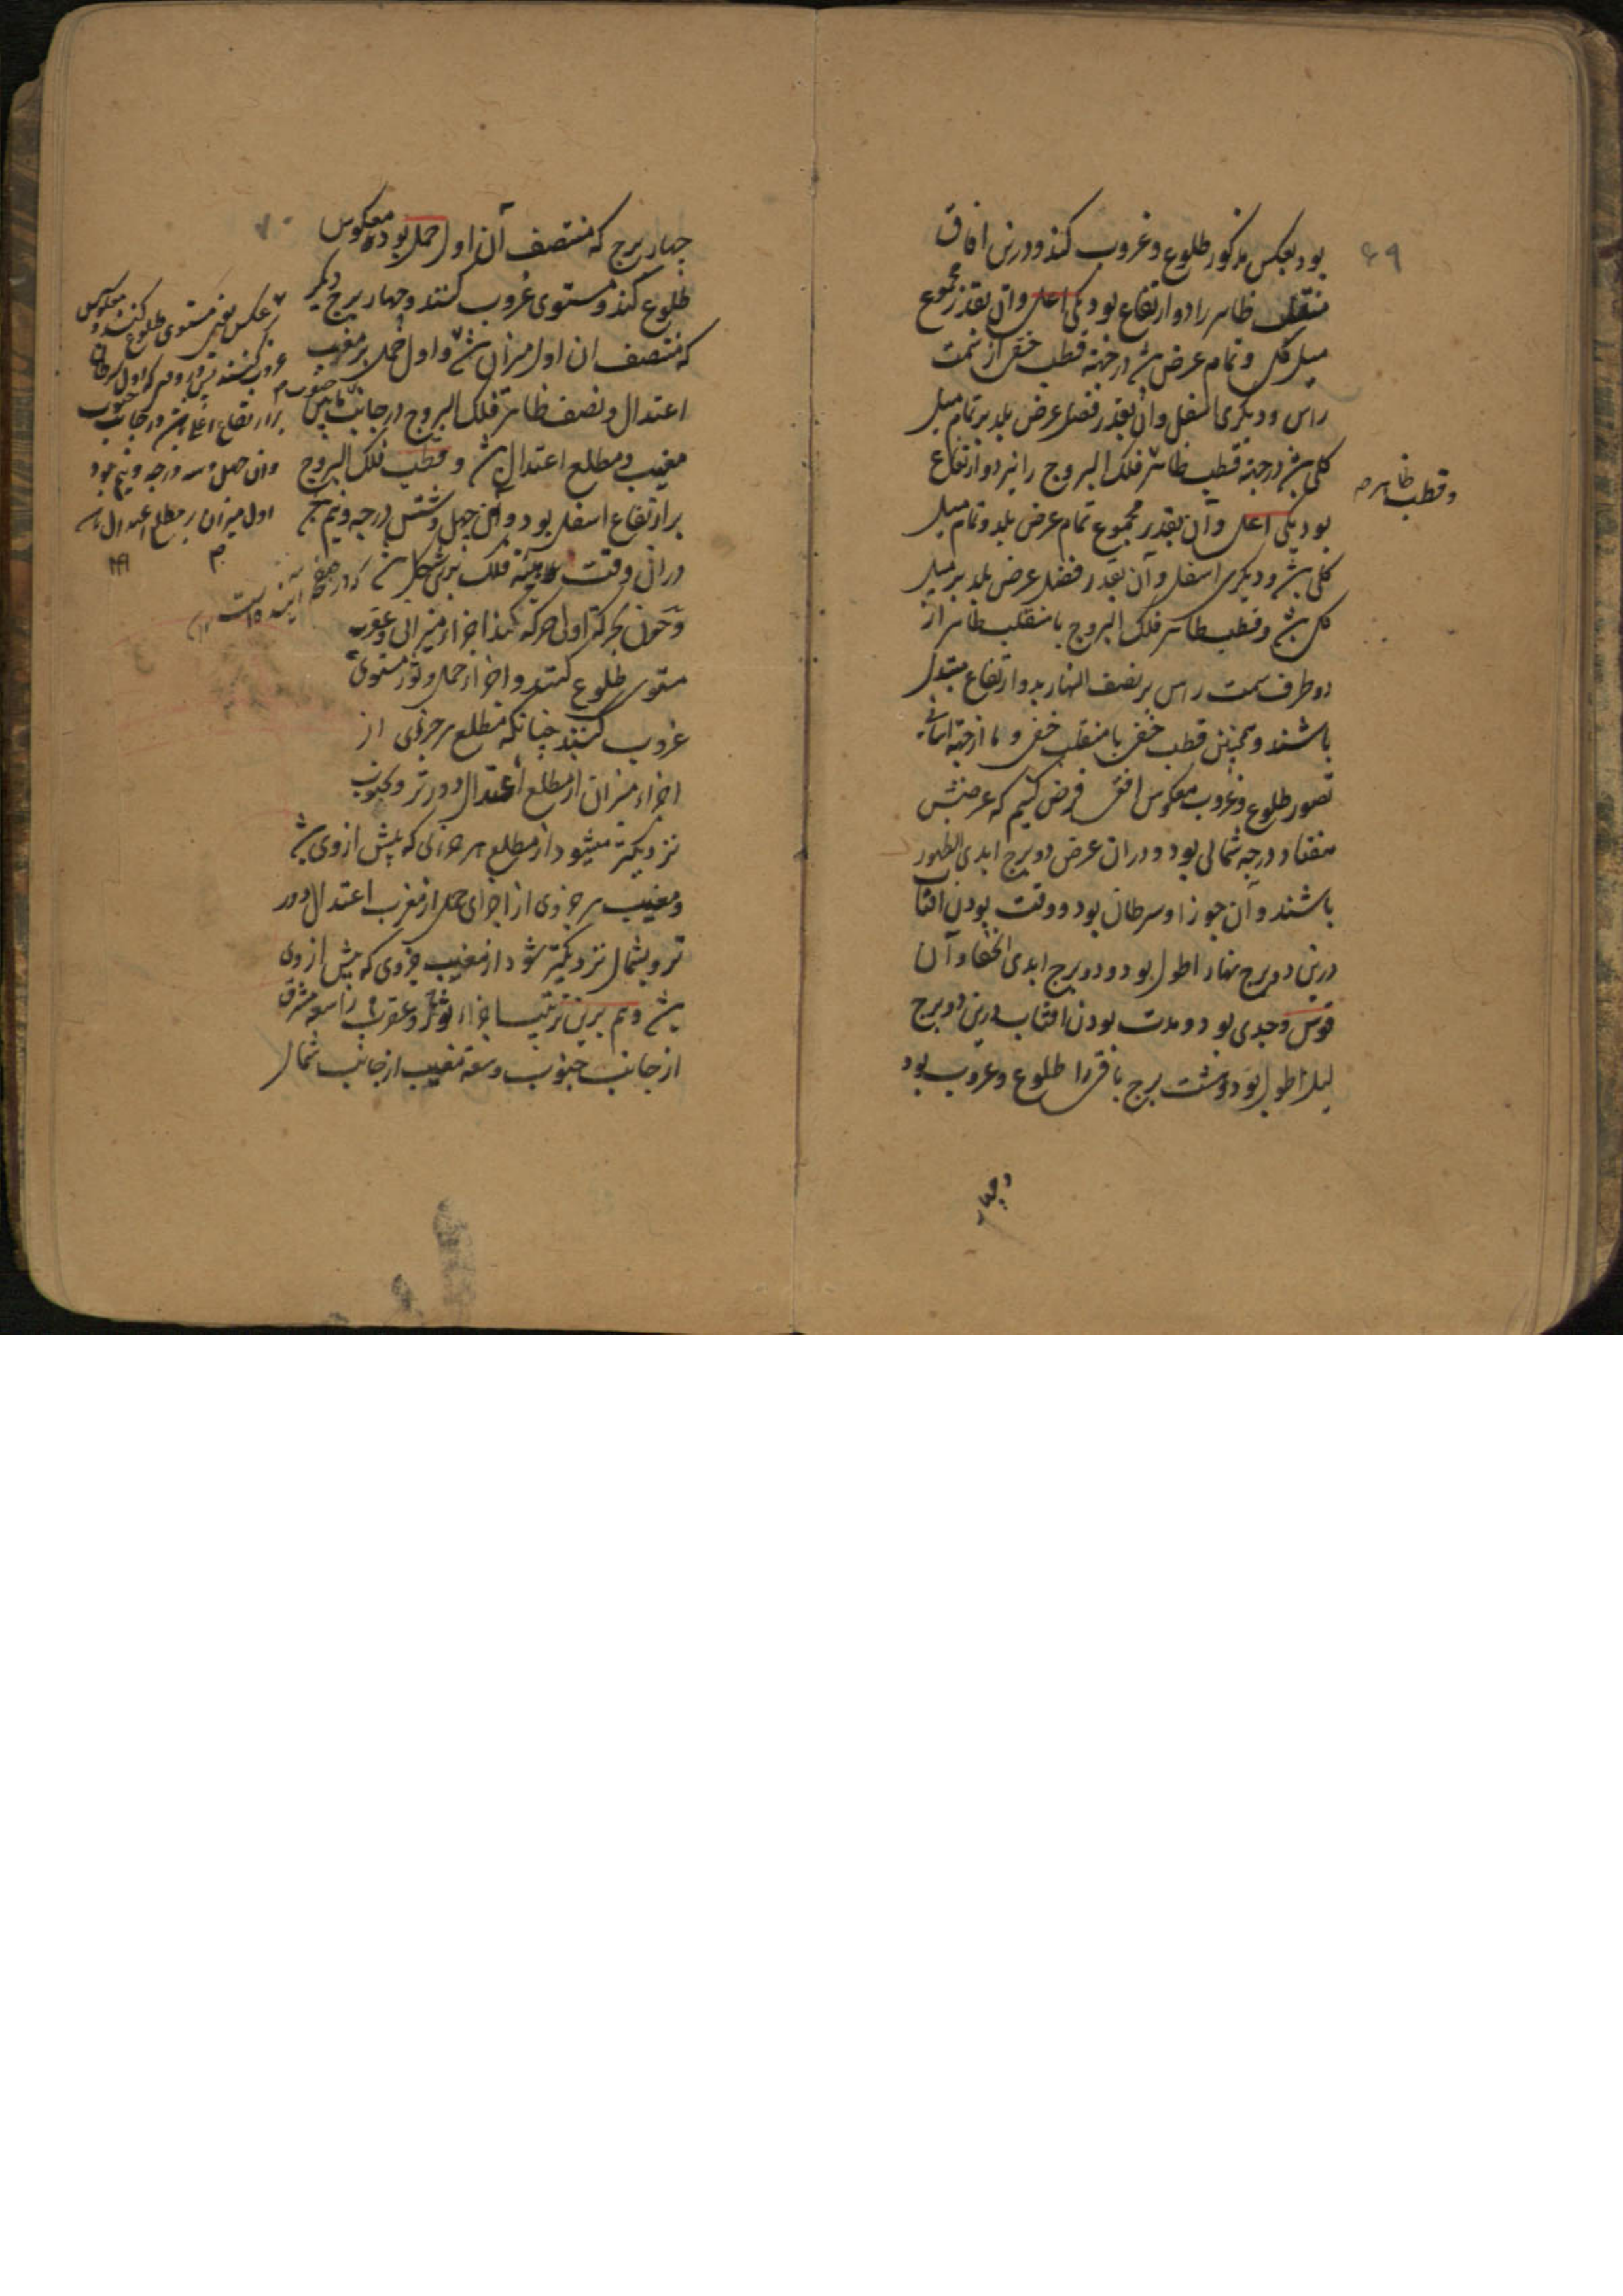 ۶۹
بود بعکس مذکور طلوع و غروب کند و درین افاق
منقلب ظاهر را دو ارتفاع بود یکی اعلی وان بقدر مجموع
میل کلی و تمام عرض باشد در جهة قطب خفی از سمت
راس و دیگری اسفل وان بقدر فضل عرض بلد بر تمام میل
کلی باشد در جهة قطب ظاهر فلک البروج را نیز دو ارتفاع
و قطب ظاهر
بود یکی اعلی وآن بقدر مجموع تمام عرض بلد و تمام میل
کلی باشد و دیگری اسفل وآن بقدر فضل عرض بلد بر میل
کلی باشد و قطب ظاهر فلک البروج با منقلب ظاهر از
دو طرف سمت راس بر نصف النهار بدو ارتفاع متبدل
باشند و همچنین قطب خفی با منقلب خفی و ما از جهة اسانی
تصور طلوع و غروب معکوس افقی فرض کنیم که عرضش
هفتاد درجه شمالی بود و دران عرض دو برج ابدی الظهور
باشند و آن جوزا و سرطان بود و وقت بودن افتاب
درین دو برج نهار اطول بود و دو برج ابدی الخفا و آن
قوس و جدی بود و مدت بودن افتاب درین دو برج
لیل اطول بود و هشت برج باقی را طلوع و غروب بود
و چهار
۷۰
چهار برج که منتصف آن اول حمل بود معکوس
طلوع کنند و مستوی غروب کنند و چهار برج دیگر
که منتصف ان اول میزان باشد و اول حمل بر مغرب
اعتدال و نصف ظاهر فلک البروج در جانب مابین
مغیب و مطلع اعتدال باشد و قطب فلک البروج
بر ارتفاع اسفل بود و آن چهل و شش درجه و نیم
دران وقت هیئه فلک برین شکل باشد که در صفحه آینده است
و چون بحرکة اولی حرکه کند اجزاء میزان و عقرب
مستوی طلوع کنند و اجزاء حمل و ثور مستوی
غروب کنند چنانکه مطلع هر جزوی از
اجزاء میزان از مطلع اعتدال دورتر و بجنوب
نزدیکتر میشود از مطلع هر جزئی که پیش از وی باشد
و مغیب هر جزوی از اجزای حمل از مغرب اعتدال دور
تر و بشمال نزدیکتر شود از مغیب جزوی که پیش از وی
باشد و هم برین ترتیب اجزاء ثور و عقرب را سعه مشرق
از جانب جنوب و سعه مغیب از جانب شمال
عکس یعنی مستوی طلوع کنند و معکوس
غروب کنند پس در وقتی که اول سرطان
بر ارتفاع اعلی باشد در جانب جنوب
وان چهل و سه درجه و نیم بود
اول میزان بر مطلع اعتدال باشد